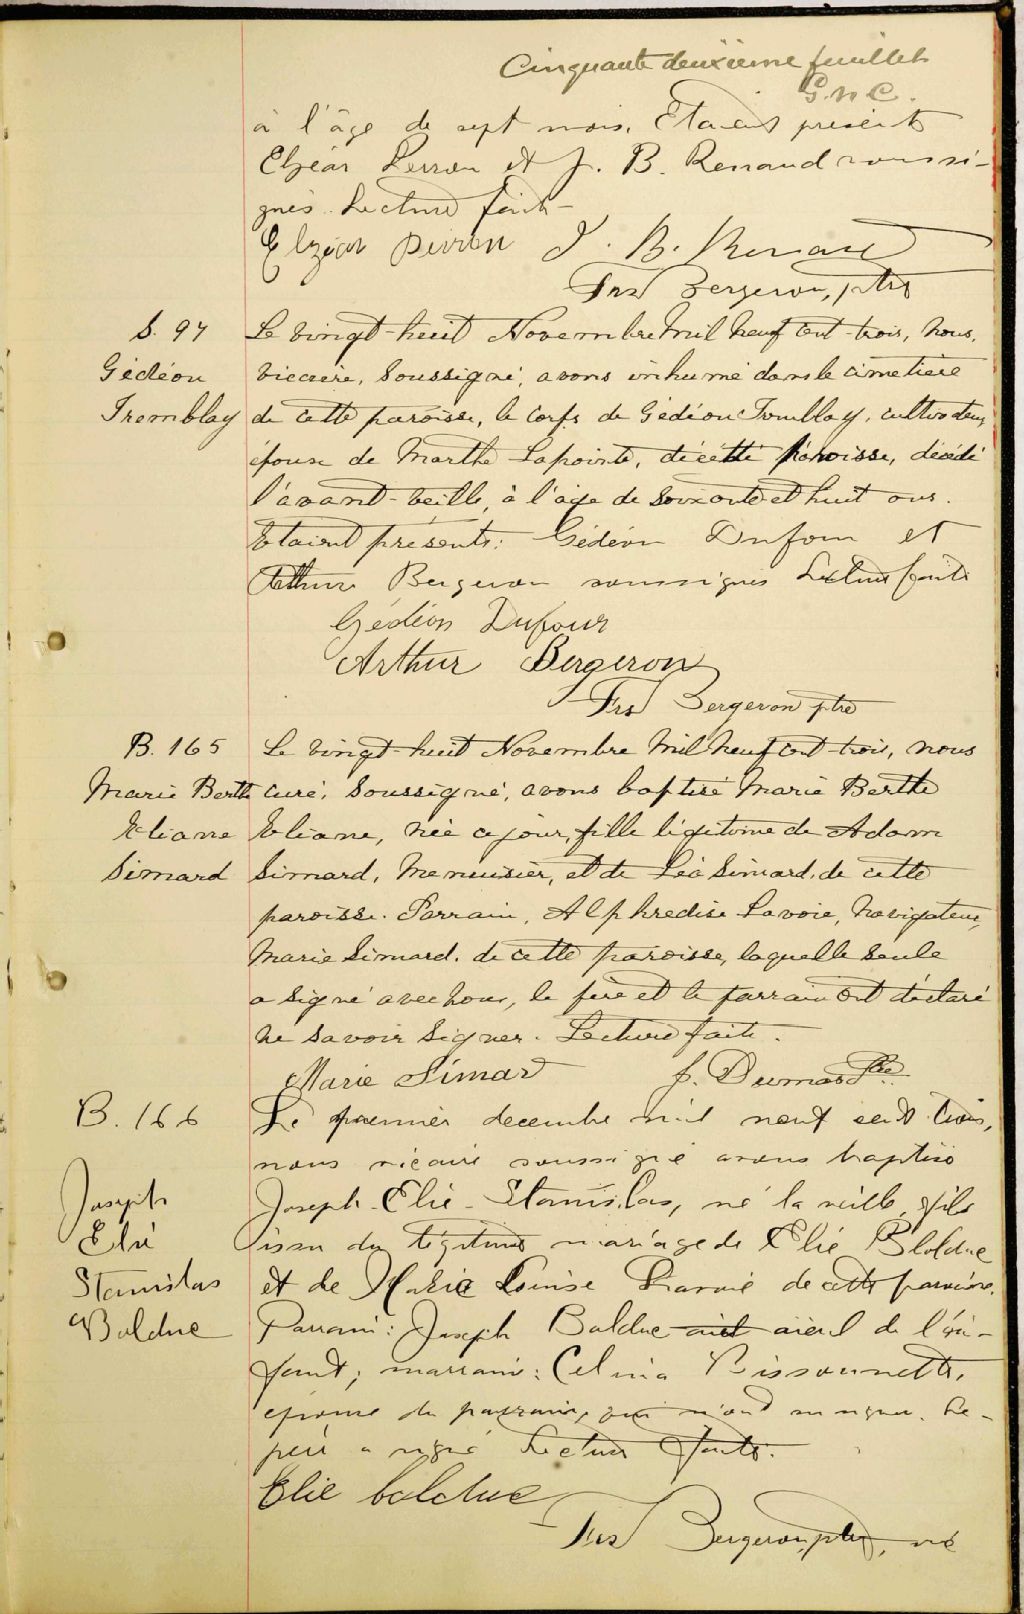 Cinquante deuxième feuillet
G. N. C.
à l'âge de sept mois. Etaient présents
Elzéar Perron et J. B. Renaud soussi-
gnés. Lecture faite
Elzéar Perron J. B. Renaud
Frs Bergeron, ptre
S. 97
Gédéon
Tremblay
Le vingt-huit Novembre Mil neuf cent-trois, nous,
vicaire, soussigné, avons inhumé dans le cimetière
de cette paroisse, le corps de Gédéon Tremblay, cultivateur,
époux de Marthe Lapointe, de cette paroisse, décédé
l'avant-veille, à l'âge de soixante et huit ans.
Etaient présents: Gédéon Dufour et
Arthur Bergeron soussignés Lecture faite
Gédéon Dufour
Arthur Bergeron
Frs Bergeron ptre
B. 165
Marie Berthe
Eliane
Simard
Le vingt-huit Novembre Mil neuf cent-trois, nous
curé, soussigné, avons baptisé Marie Berthe
Eliane, née ce jour, fille légitime de Adam
Simard, Menuisier, et de Léa Simard, de cette
paroisse. Parrain, Alphredise Lavoie, navigateur,
Marie Simard, de cette paroisse, laquelle seule
a signé avec nous, le père et le parrain ont déclaré
ne savoir signer. Lecture faite.
Marie Simard J. Dumas Ptre
B. 166
Joseph
Elie
Stanislas
Bolduc
Le premier decembre mil neuf cent trois,
nous vicaire soussigné avons baptisé
Joseph-Elie-Stanislas, né la veille, fils
issu du légitime mariage de Elie Bolduc
et de Marie Louise de cette paroisse.
Parrain: Joseph Bolduc aieul de l'en-
fant; marraine: Celina Bissonnette,
épouse du parrain, qui n'ont su signer. Le
père a signé Lecture faite.
Elie bolduc
Frs Bergeron, ptre, vic